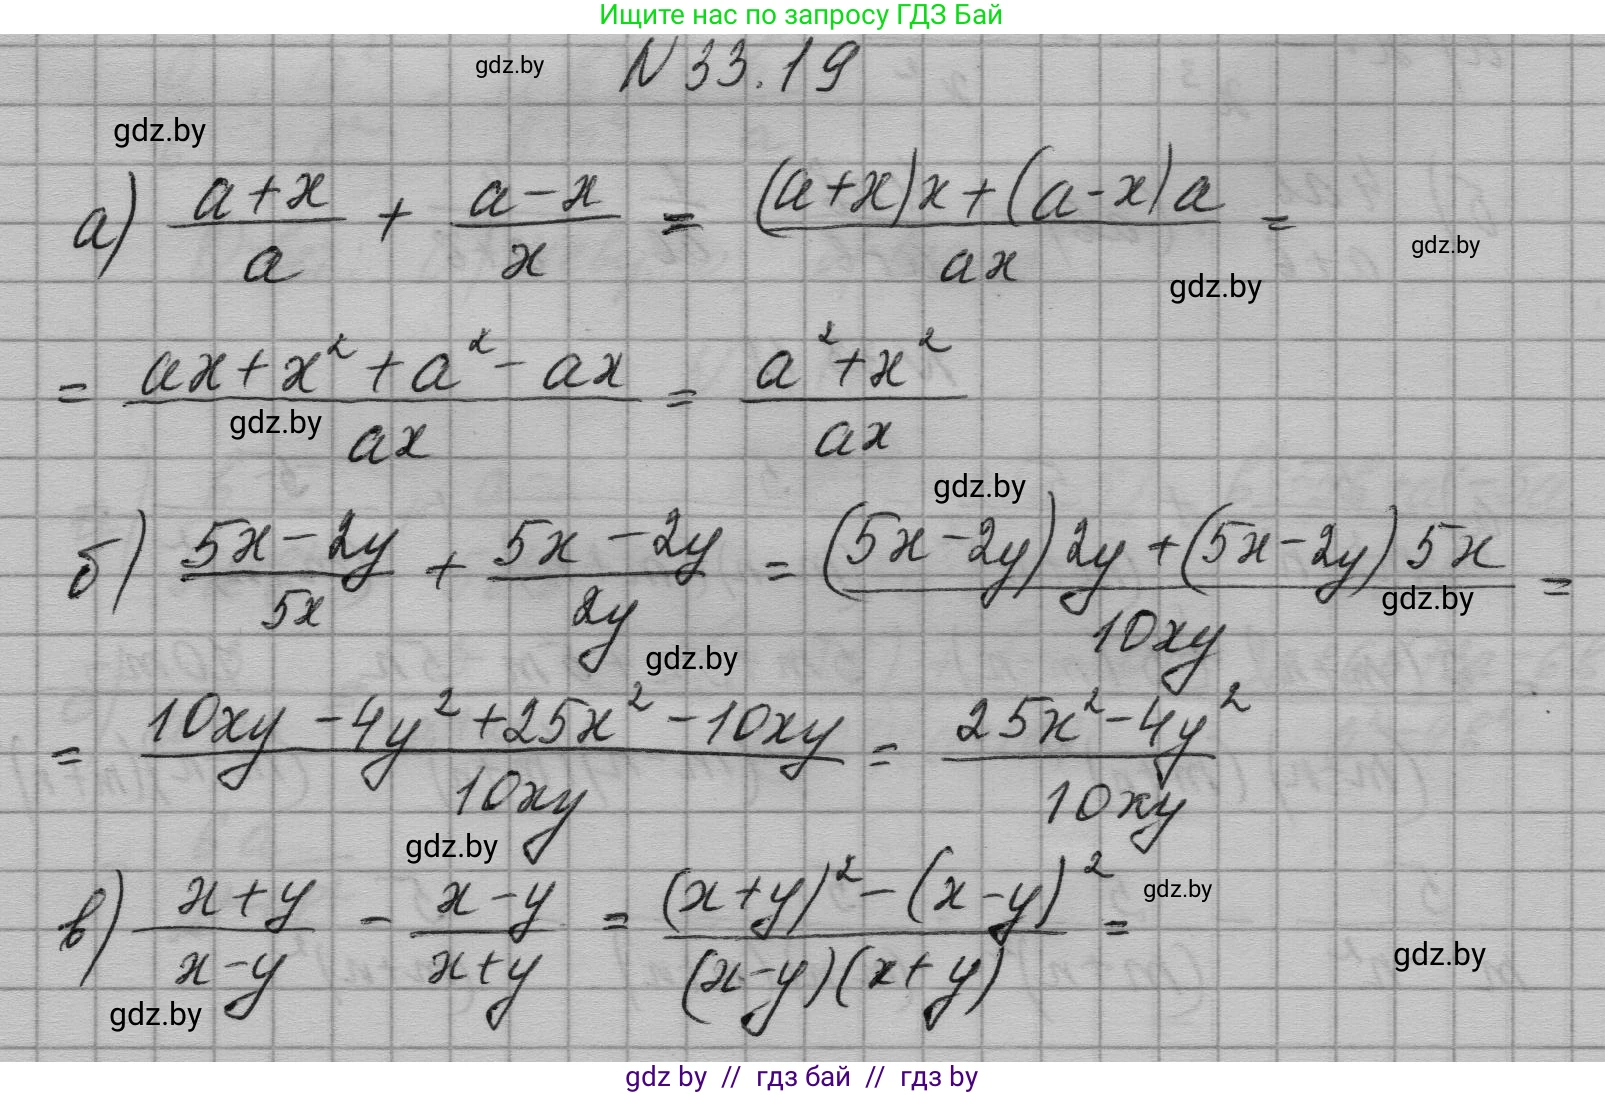 Ищите нас по запросу ГДЗ Бай
gdz.by
N 33.19
gdz.by
а) (a+x)/a + (a-x)/x = ((a+x)x+(a-x)a)/(ax) =
gdz.by
gdz.by
= (ax+x²+a²-ax)/(ax) = (a²+x²)/(ax)
gdz.by
gdz.by
б) (5x-2y)/(5x) + (5x-2y)/(2y) = ((5x-2y)2y+(5x-2y)5x)/(10xy) =
gdz.by
gdz.by
= (10xy-4y²+25x²-10xy)/(10xy) = (25x²-4y²)/(10xy)
gdz.by
в) (x+y)/(x-y) - (x-y)/(x+y) = ((x+y)²-(x-y)²)/((x-y)(x+y)) =
gdz.by
gdz.by
gdz.by
gdz by // гдз бай // гдз by